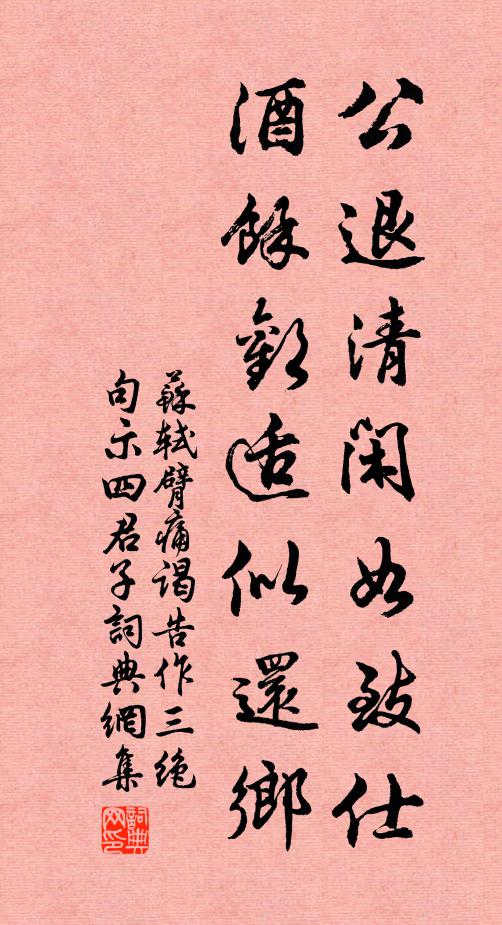 公退清閑如致仕
酒餘歡適似還鄉
蘇軾臂痛謁告作三絕
句示四君子詞典網集
詞典网印